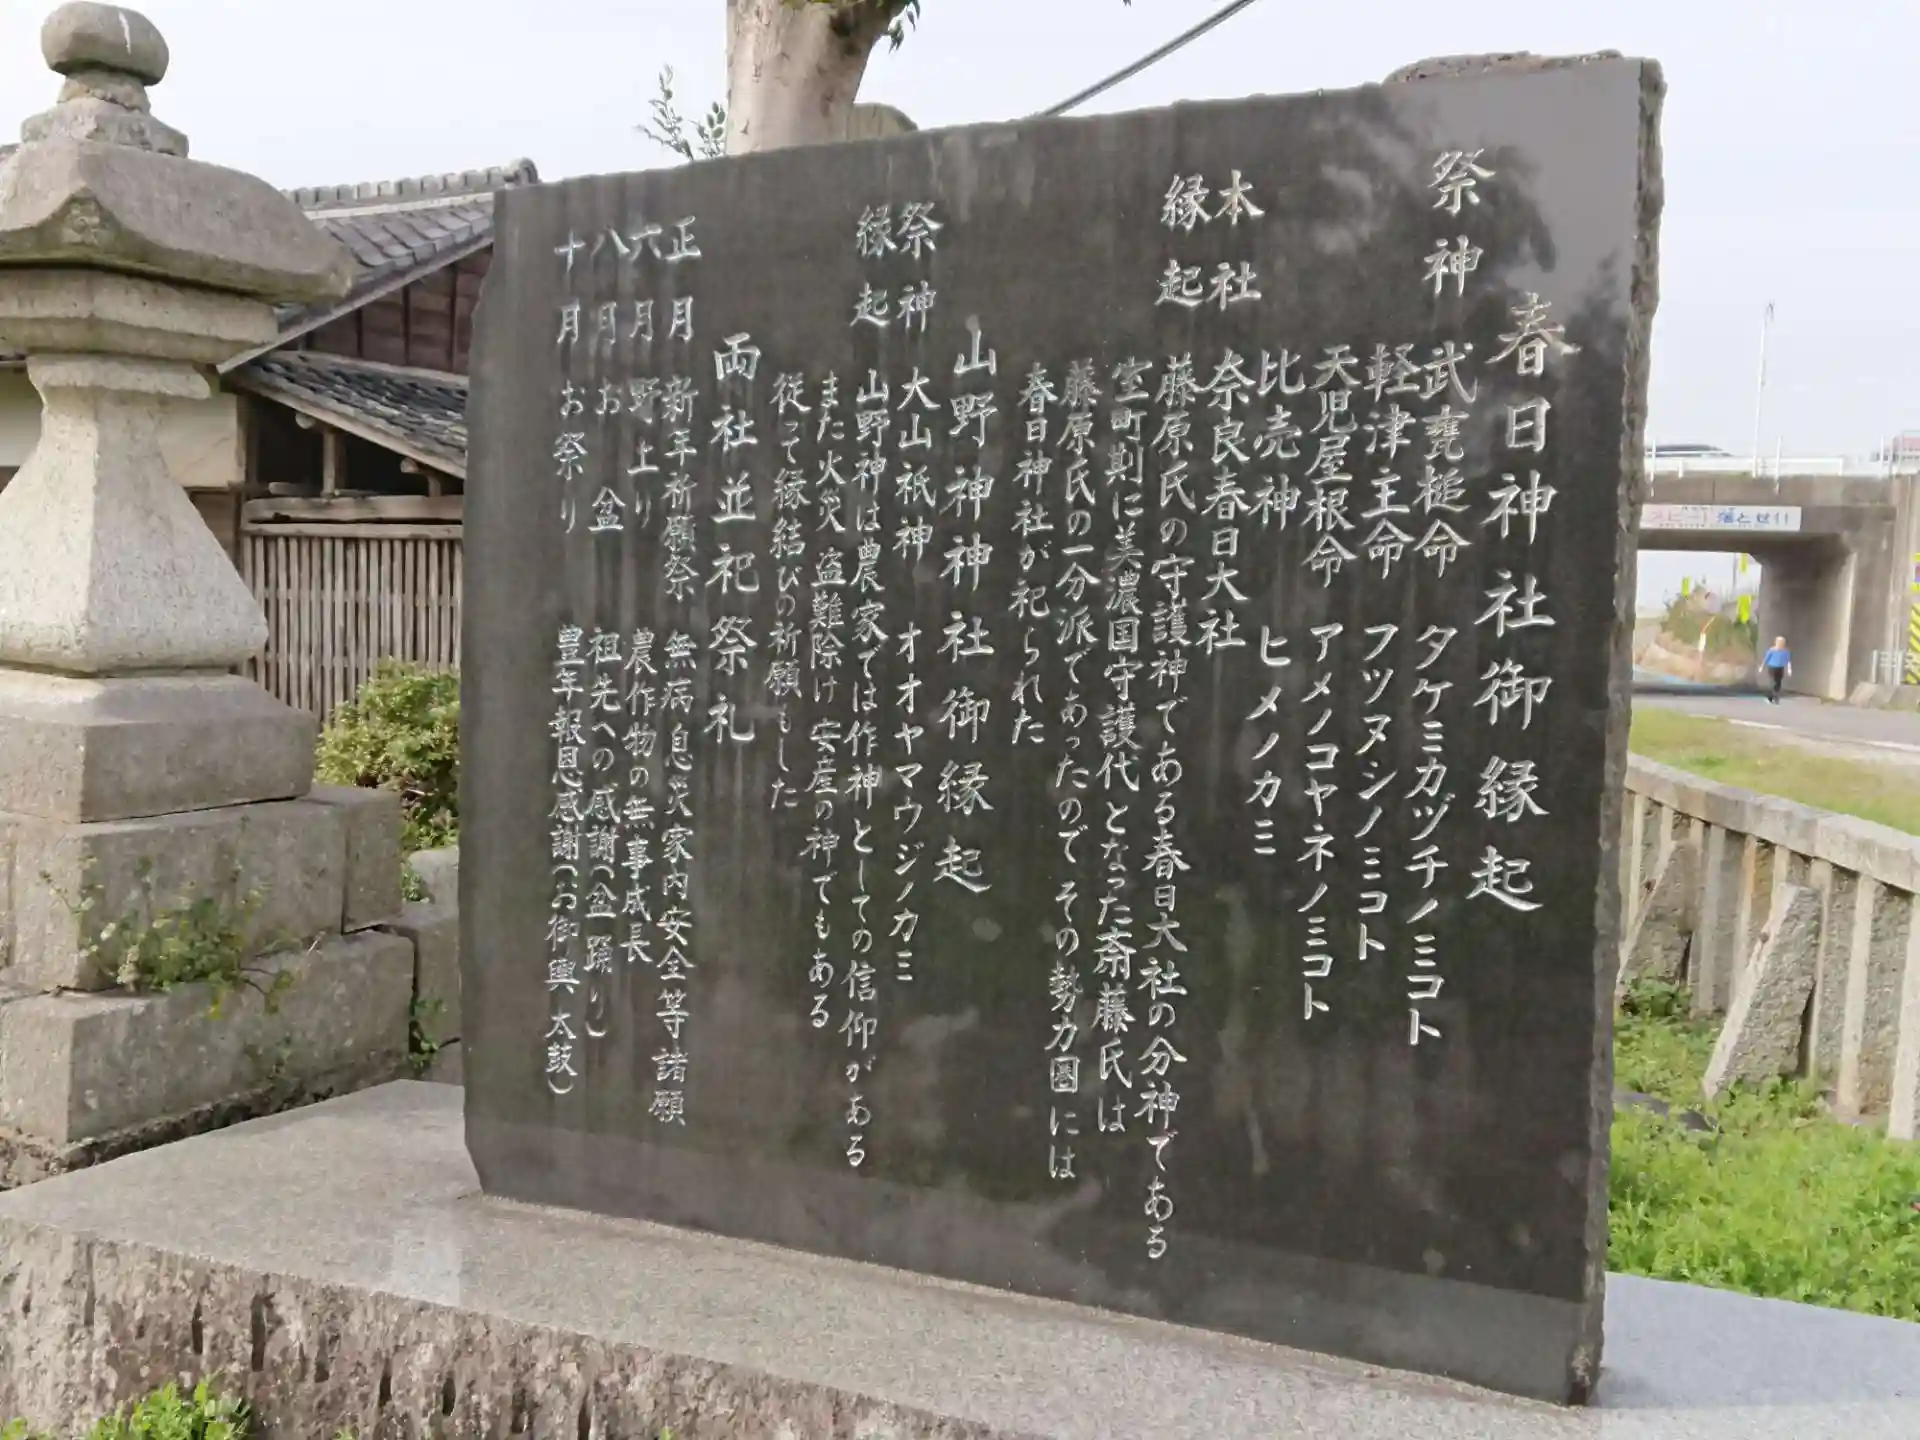 春日神社御縁起
祭神 武甕槌命 タケミカヅチノミコト
軽津主命 フツヌシノミコト
天児屋根命 アメノコヤネノミコト
比売神 ヒメノカミ
本社 奈良春日大社
縁起 藤原氏の守護神である春日大社の分神である
室町期に美濃国守護代となった斎藤氏は
藤原氏の一分派であったのでその勢力圏には
春日神社が祀られた
山野神神社御縁起
祭神 大山祇神 オオヤマウジノカミ
縁起 山野神は農家では作神としての信仰がある
また火災 盗難除け安産の神でもある
従って縁結びの祈願もした
両社並祀祭礼
正月 新年祈願祭 無病息災家内安全等諸願
六月 野上り 農作物の無事成長
八月 お盆 祖先への感謝(盆踊り)
十月 お祭り 豊年報恩感謝(お御輿 太鼓)
落とせ!!